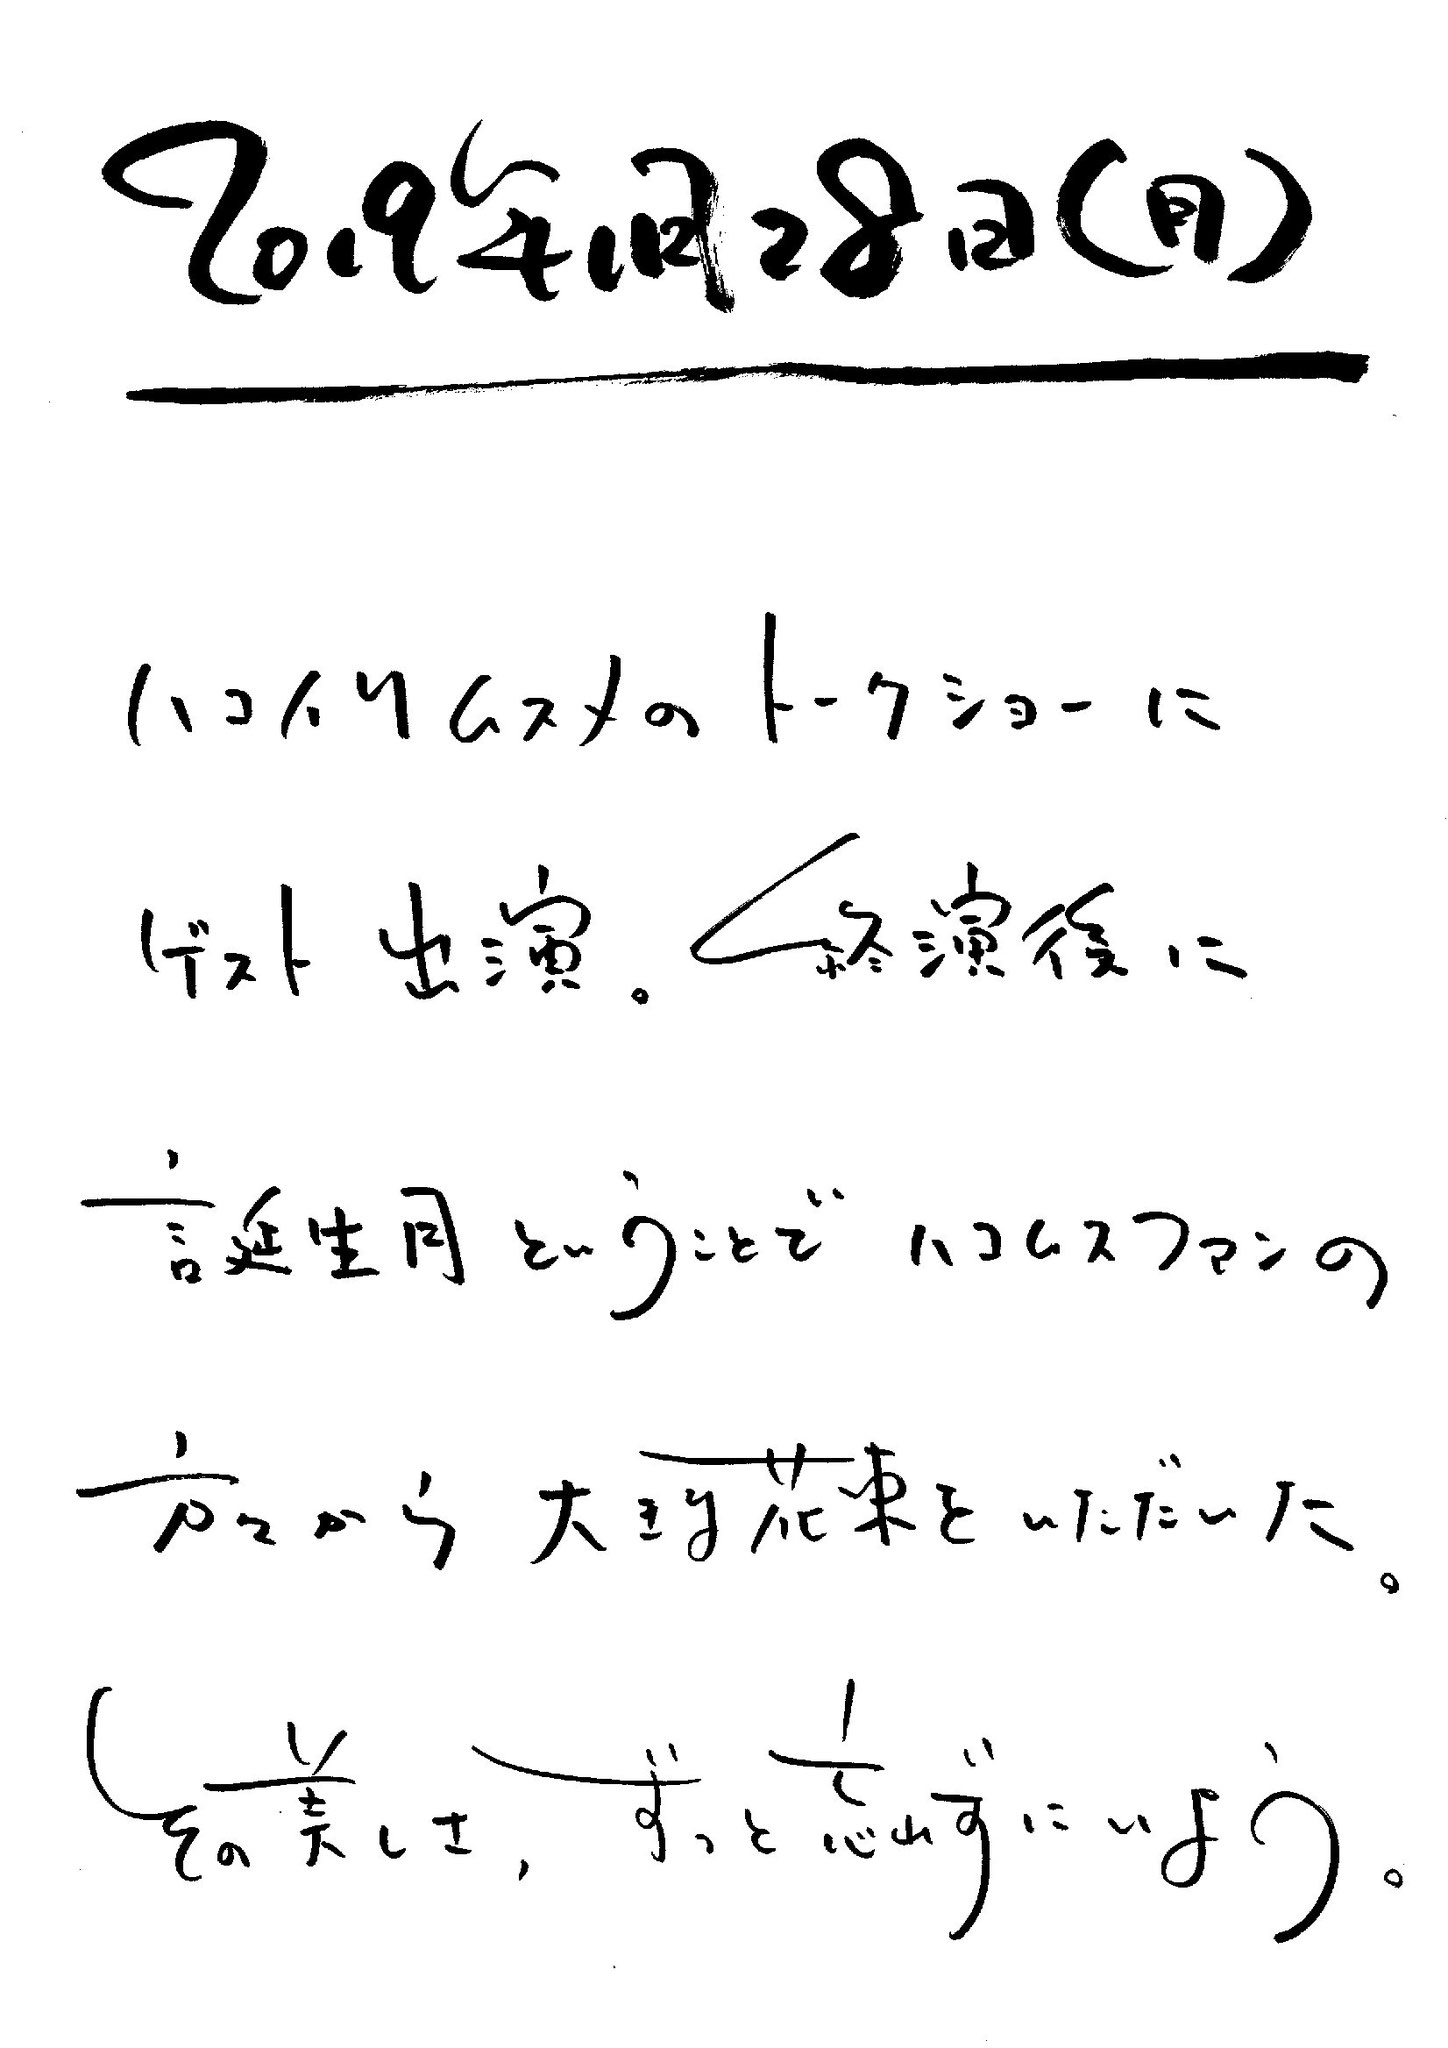 2019年1月28日(月)
ハコイリムスメのトークショーに
ゲスト出演。終演後に
誕生月ということでハコムスファンの
方々から大きな花束をいただいた。
その美しさ、ずっと忘れずにいよう。